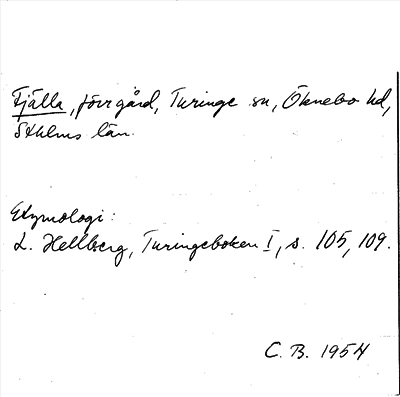 Fjälla, förr gård, Turinge sn, Öknebo hd,
Sthlms län.
Etymologi:
L. Hellberg, Turingeboken I, s. 105, 109.
C. B. 1954